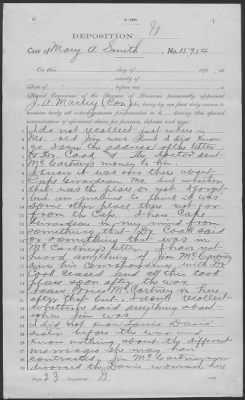 DEPOSITION
Case of Mary A. Smith, No.
On this day of 190 , at
county of
State of before me,
Special Examiner of the Bureau of Pensions, personally appeared
J. A. Machey (Con), who, being by me first duly sworn to
answer truly all interrogatories propounded to h , during this special
examination of aforesaid claim for pension, deposes and says:
I do not recollect just where in
Mo. said Jim was but I did know
so saw the address of the letter
to Dr. Cook. The Doctor sent
McCartney's money to him.
I know it was over there about
Cape Girardeau Mo. but whether
that was the place or not I forget
but am inclined to think it was
some other place thro not far
from the Cape. I had Cape
Girardeau in my mind from
something that Dr. Cook said
or something that was in
McCartney's letter. I have not
heard anything of Jim McCartney
since his correspondence with Dr.
Cook ceased and all this took
place soon after the war.
I saw McCartney in here
after that but I don't recollect
whether he said anything about
where Jim was.
I did not know Davis
before the war and
know nothing about the different
marriages she may have
contracted. Jim McCartney
divorced the Davis woman here
Page 23 Deposition